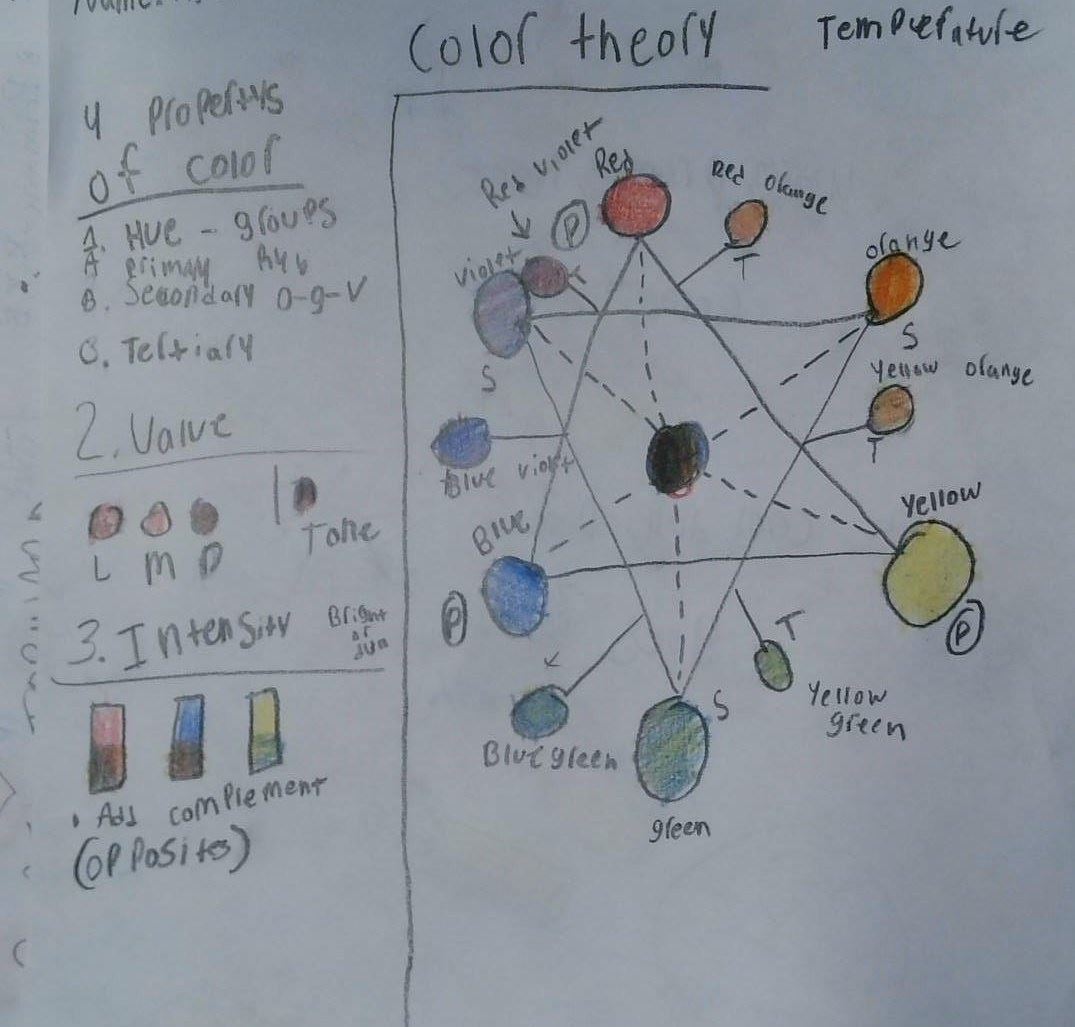 Name:
Color theory
Temperature
4 Propertys
of color
1. Hue - groups
A Primary Ryb
B. Secondary O-g-V
C. Tertiary
2. Value
L M D
Tone
3. Intensity
Bright
or
dull
• Add complement
(opposites)
Red violet
Red
P
Red Orange
T
Violet
T
S
orange
S
Yellow orange
T
Blue violet
Blue
P
Yellow
P
T
Yellow
green
Blue green
S
green